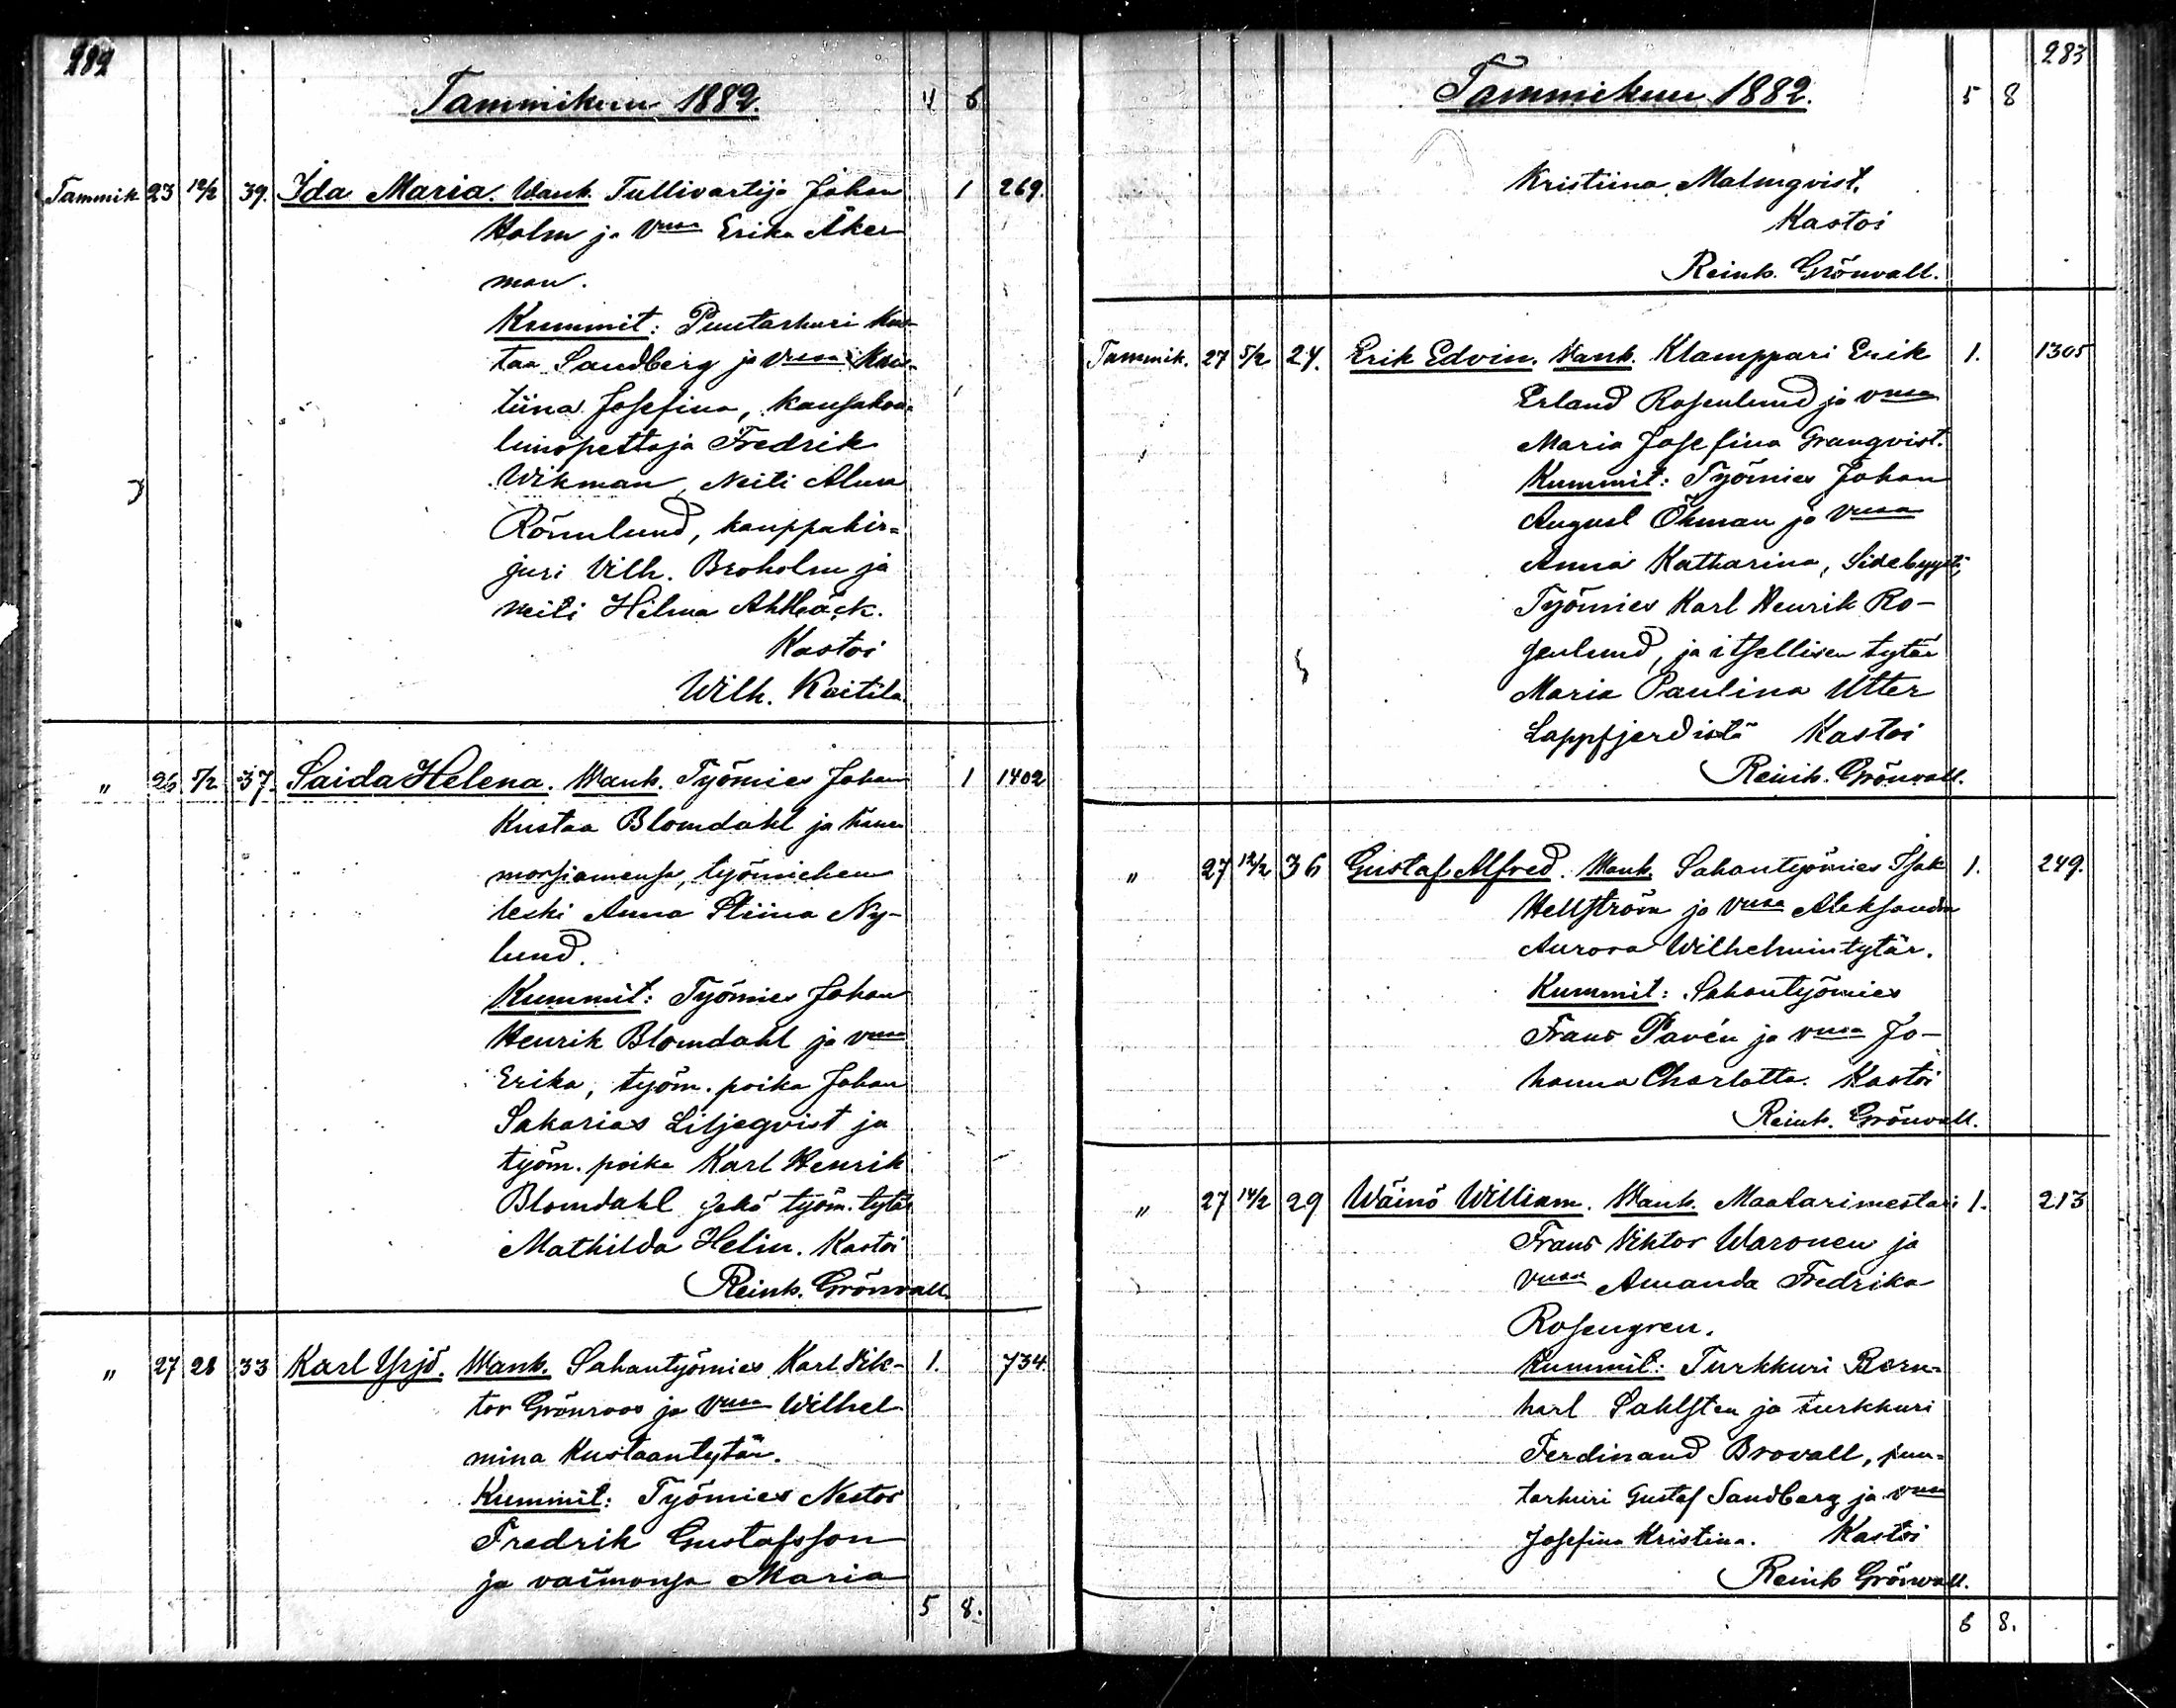 282
Tammikuu 1882. 4 6
Tammik 23 12/2 39. Ida Maria. Vanh. Tullivartija Johan 1 269.
Holm ja Vnsa Erika Åker
man.
Kummit: Puutarhuri Kus-
taa Sandberg ja Vnsa Kris-
tiina Josefina, kansakou-
lunopettaja Fredrik
Wikman, Neiti Alma
Rönnlund, kauppakir=
juri Vilh. Broholm ja
neiti Hilma Ahlbäck.
Kastoi
Wilh. Kaitila.
" 26 5/2 37. Saida Helena. Vanh. Työmies Johan 1 1402
Kustaa Blomdahl ja hänen
morsiamensa, työmiehen
leski Anna Stiina Ny-
lund.
Kummit: Työmies Johan
Henrik Blomdahl ja vnsa
Erika, työm. poika Johan
Sakarias Liljeqvist ja
työm. poika Karl Henrik
Blomdahl sekä työm. tytär
Mathilda Helin. Kastoi
Reinh. Grönvall.
" 27 28 33 Karl Yrjö. Vanh. Sahantyömies Karl Vik- 1. 734.
tor Grönroos ja Vnsa Wilhel
mina Kustaantytär.
Kummit: Työmies Nestor
Fredrik Gustafsson
ja vaimonsa Maria
5 8.
283
Tammikuu 1882. 5 8
Kristiina Malmqvist.
Kastoi
Reinh. Grönvall.
Tammik. 27 5/2 24. Erik Edvin. Vanh. Klamppari Erik 1. 1305
Erland Rosenlund ja vnsa
Maria Josefina Granqvist.
Kummit: Työmies Johan
August Öhman ja Vnsa
Anna Katharina, Sidebyystä,
Työmies Karl Henrik Ro-
senlund, ja itsellisen tytär
Maria Paulina Utter
Lappfjerdistä Kastoi
Reinh. Grönvall.
" 27 12/2 36 Gustaf Alfred. Vanh. Sahantyömies Isak 1. 249.
Hellström ja Vnsa Aleksandra
Aurora Wilhelmintytär.
Kummit: Sahantyömies
Frans Pavén ja vnsa Jo-
hanna Charlotta. Kastoi
Reinh. Grönvall.
" 27 14/2 29 Wäinö William. Vanh. Maalarimestari 1. 213
Frans Viktor Waronen ja
Vnsa Amanda Fredrika
Rosengren.
Kummit: Turkkuri Bern=
harl Sahlsten ja turkkuri
Ferdinand Brovall, puu=
tarhuri Gustaf Sandberg ja vnsa
Josefina Kristina. Kastoi
Reinh Grönvall.
6 8.